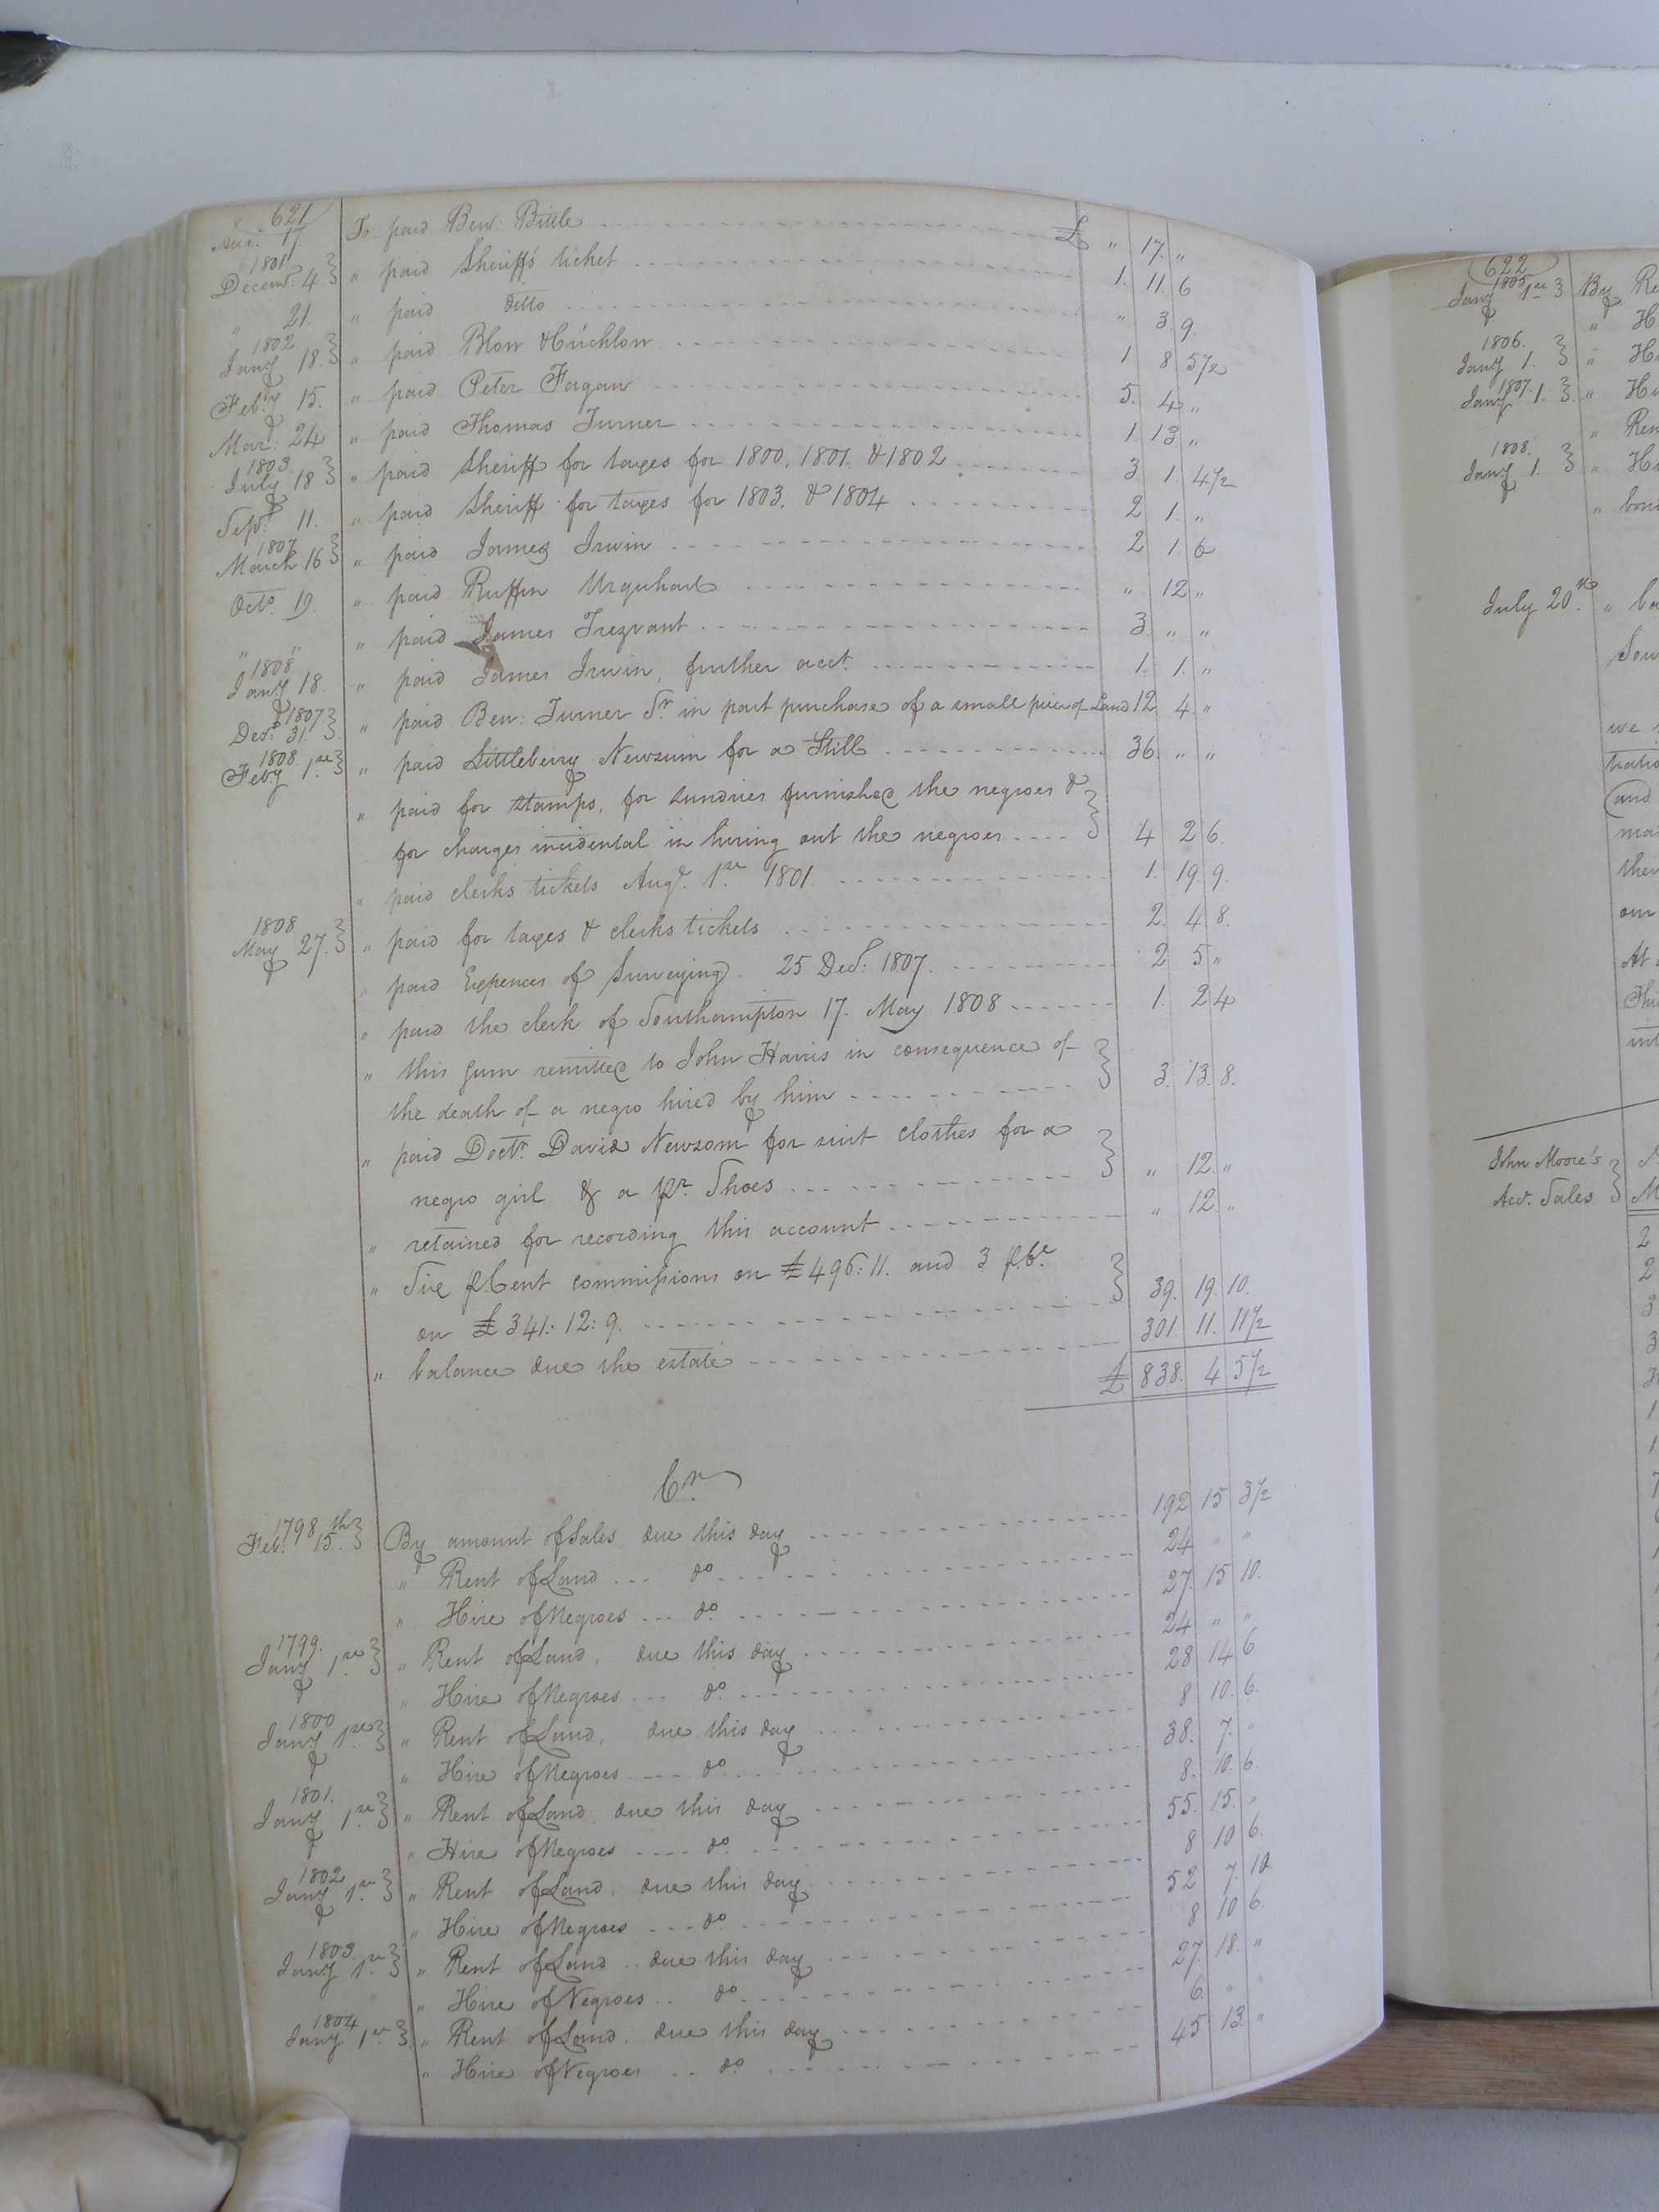 621
Aug. 17. To paid Ben: Bittle £ " 17. "
1801
Decem.r 4. " paid Sheriffs ticket 1. 11. 6
" 21. " paid ditto " 3. 9.
1802
Jan.y 18. " paid Blow & 1. 8 5 1/2
Feb.y 15. " paid Peter Fagan 5. 4 "
Mar: 24 " paid Thomas Turner 1. 13 "
1803.
July 18 " paid Sheriff for taxes for 1800, 1801. & 1802 3. 1. 4 1/2
Sept. 11. " paid Sheriff for taxes for 1803. & 1804 2 1. "
1807
March 16 " paid James Irwin 2 1. 6
Octo. 19. " paid Ruffin Urquhart " 12 "
" " " paid James Trezvant 3. " "
1808
Jan.y 18. " paid James Irwin, further acct. 1. 1. "
1807.
Decr. 31. " paid Ben: Turner Sr. in part purchase of a small piece of Land 12 4. "
1808.
Feb.y 1.st " paid Littleberry Newsum for a Still 36. " "
" paid for stamps, for sundries furnished the negroes &
for charges incidental in hiring out the negroes 4 2 6.
" paid clerks tickets Aug.t 1.st 1801. 1. 19. 9.
1808
May 27. " paid for taxes & clerks tickets 2. 4 8.
" paid Expences of Surveying. 25 Decr: 1807. 2 5 "
" paid the clerk of Southampton 17. May 1808 1. 2 4
" this Sum remitted to John Harris in consequence of
the death of a negro hired by him 3. 13. 8.
" paid Doctr. David Newsom for suit clothes for a
negro girl & a pr. Shoes " 12. "
" retained for recording this account " 12. "
" Six p.Cent commissions on £496: 11. and 3 p.Ct.
on £341: 12: 9. 39. 19. 10.
" balance due the estate 301. 11. 11 1/2
£ 838. 4 5 1/2
Cr.
1798
Feb. 15.th By amount of Sales, due this day 192 15 3 1/2
" Rent of Land do. 24 " "
" Hire of Negroes do. 27. 15 10.
1799.
Jan.y 1.st " Rent of Land, due this day 24 " "
" Hire of Negroes do. 28 14 6
1800
Jan.y 1.st " Rent of Land, due this day 8 10. 6.
" Hire of Negroes do. 38. 7. "
1801.
Jan.y 1.st " Rent of Land, due this day 8. 10. 6.
" Hire of Negroes do. 55. 15. "
1802
Jan.y 1.st " Rent of Land, due this day 8 10 6.
" Hire of Negroes do. 52 7. 10.
1803.
Jan.y 1.st " Rent of Land due this day 8 10 6.
" Hire of Negroes do. 27. 18. "
1804
Jan.y 1.st " Rent of Land, due this day 6. " "
" Hire of Negroes do. 45 13. "
622
1805
Jan.y 1.st By Re
" H
1806.
Jan.y 1. " Hi
1807.
Jan.y 1. " Hi
" Ren
1808.
Jan.y 1. " Hi
" bon
July 20.th " ba
Sou
we
tratio
(and
ma
thei
our
At
Thi
int
John Moore's
Acct. Sales M
2
2
3
3
1
1